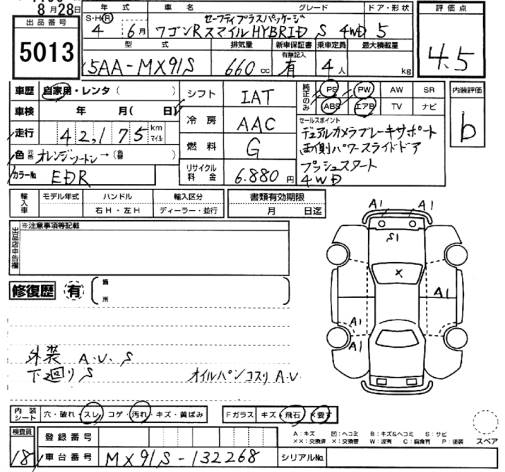 8月28日
出品番号
5013
年式 車名 グレード ドア・形状
セーフティプラスパッケージ
S・H・R 4年 6月 ワゴンRスマイルHYBRID S 4WD 5
型式 排気量 新車保証書 乗車定員 最大積載量
5AA-MX91S 660cc 有 4人 kg
有無記入
評価点
4.5
車歴 自家用・レンタ( )
車検 年 月(日)
走行 42,175 km マイル
色 オレンジツートン→( )
カラーNo EDR
シフト IAT
冷房 AAC
燃料 G
リサイクル料金 6.880円
純正のみ PS PW AW SR
ABS エアB TV ナビ
内装評価
b
セールスポイント
デュアルカメラブレーキサポート
両側パワースライドドア
プッシュスタート
4WD
輸入車 モデル年式 ハンドル 輸入区分 書類有効期限
右H・左H ディーラー・並行 月 日迄
出品店申告欄 ※注意事項等記載
修復歴 有 箇所
外装 A.U.S
下廻り S オイルパンコスリ A.U
A1 A1
S1
X
A1 A1
A1
A1
内装シート 穴・破れ・スレ・コゲ・汚れ・キズ・黄ばみ
Fガラス キズ・飛石・X要す
A:キズ 凹:ヘコミ B:キズ&ヘコミ S:サビ
XX:交換済 X:要交換 W:波有 C:腐食有 P:塗装
スペア
検査員 181
登録番号
車台番号 MX91S-132268 シリアルNo.